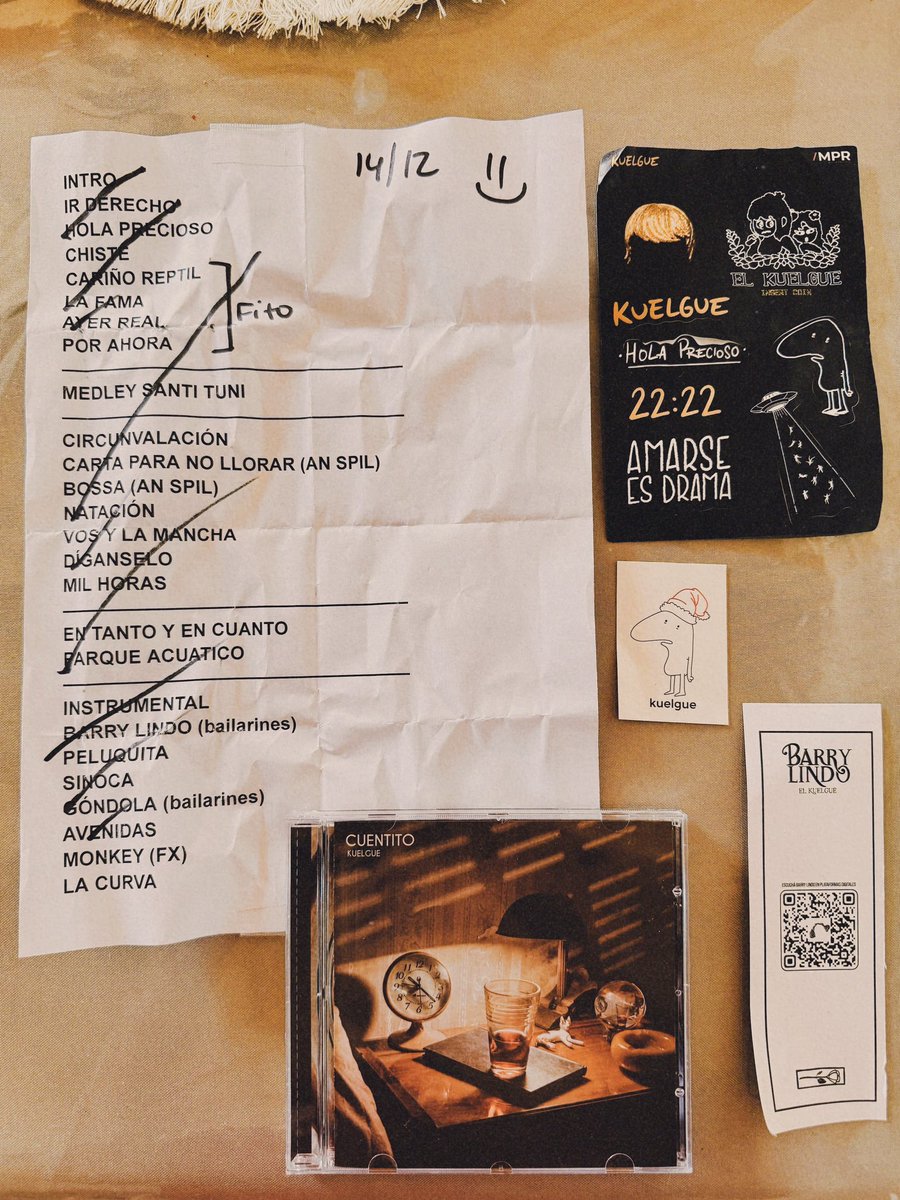 14/12
INTRO
IR DERECHO
HOLA PRECIOSO
CHISTE
CARIÑO REPTIL
LA FAMA
AYER REAL
POR AHORA
Fito
MEDLEY SANTI TUNI
CIRCUNVALACIÓN
CARTA PARA NO LLORAR (AN SPIL)
BOSSA (AN SPIL)
NATACIÓN
VOS Y LA MANCHA
DÍGANSELO
MIL HORAS
EN TANTO Y EN CUANTO
PARQUE ACUATICO
INSTRUMENTAL
BARRY LINDO (bailarines)
PELUQUITA
SINOCA
GÓNDOLA (bailarines)
AVENIDAS
MONKEY (FX)
LA CURVA
KUELGUE
/MPR
EL KUELGUE
INSERT COIN
KUELGUE
·HOLA PRECIOSO·
22:22
AMARSE
ES DRAMA
kuelgue
BARRY
LINDO
EL KUELGUE
ESCUCHÁ BARRY LINDO EN PLATAFORMAS DIGITALES
CUENTITO
KUELGUE
12
1
2
3
4
5
6
7
8
9
10
11